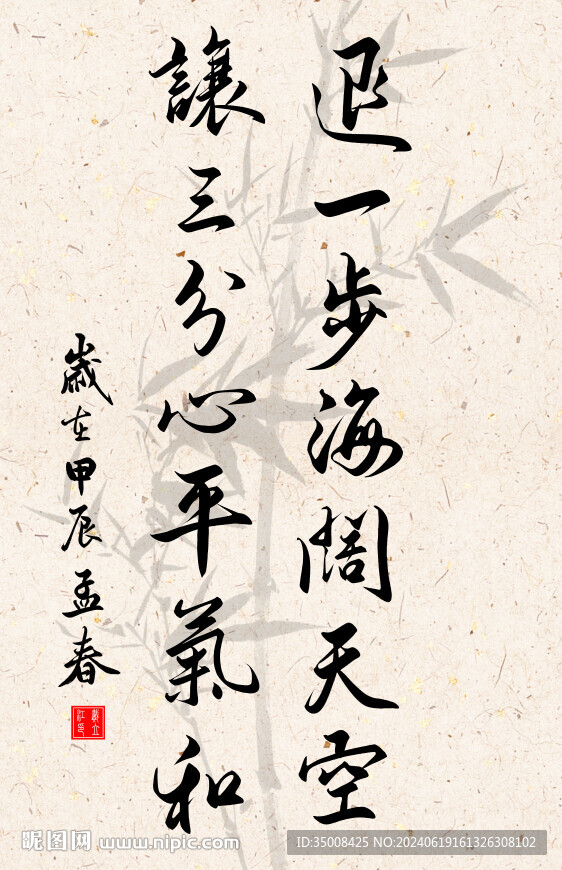 退一步海闊天空
讓三分心平氣和
歲在甲辰孟春
昵图网 www.nipic.com
ID:35008425 NO:20240619161326308102